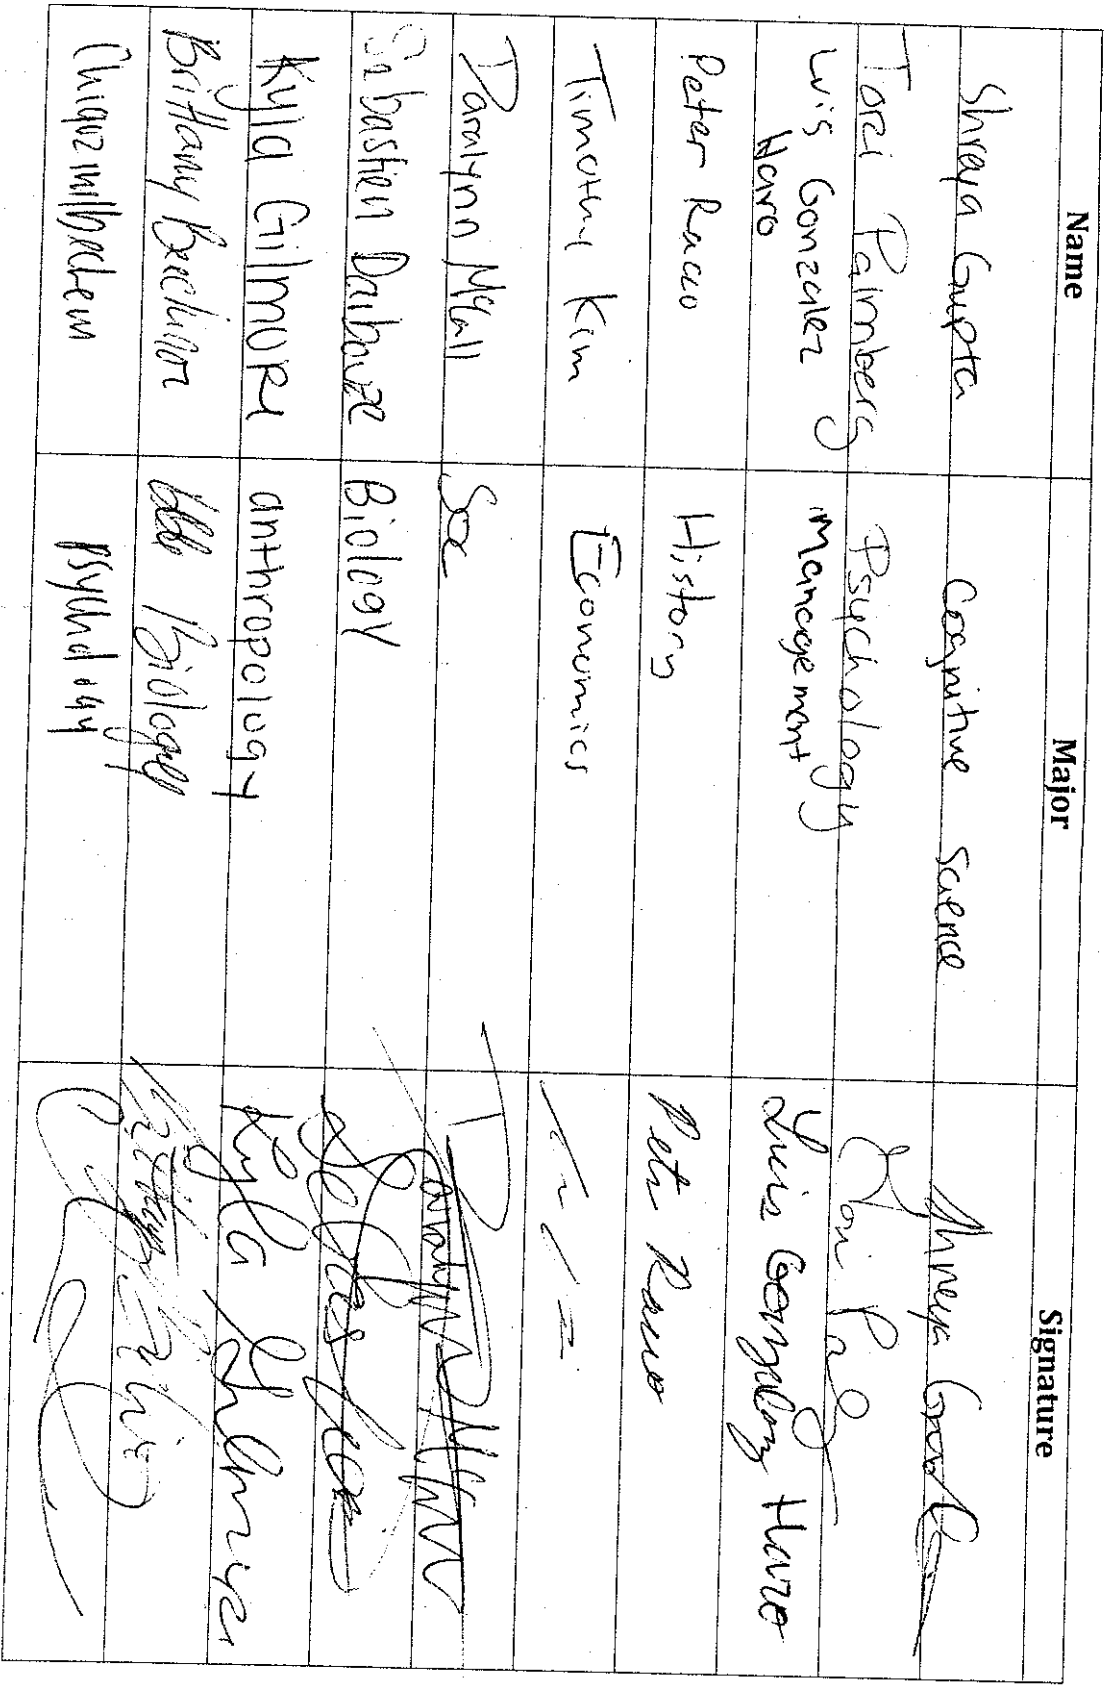 Name Major Signature
Shreya Gupta Cognitive Science Shreya Gupta
Tori Palmberg Psychology Tori
Luis Gonzalez Management Luis Gonzalez Haro
Haro
Peter Racco History Peter Racco
Timothy Kim Economics
Daralynn McCall Soc Daralynn
Sebastien Daibouze Biology
Kyla Gilmore anthropology Kyla Gilmore
Brittany Biology
Psychology